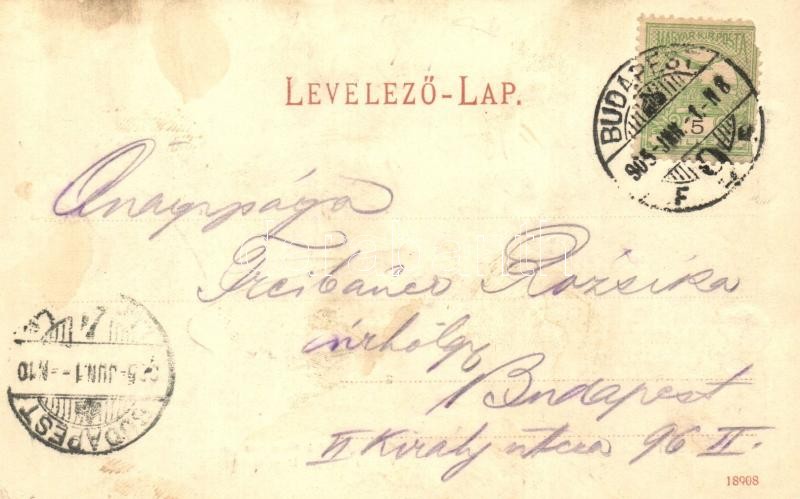 MAGYAR KIR. POSTA
5
BUDAPEST
905-JUN.-1.-N8
F
LEVELEZŐ-LAP.
Őnagysága
Freibauer Rózsika
úrhölgy
Budapest
VI Király utcza 96 II.
905-JUN.1-N10
BUDAPEST
18908